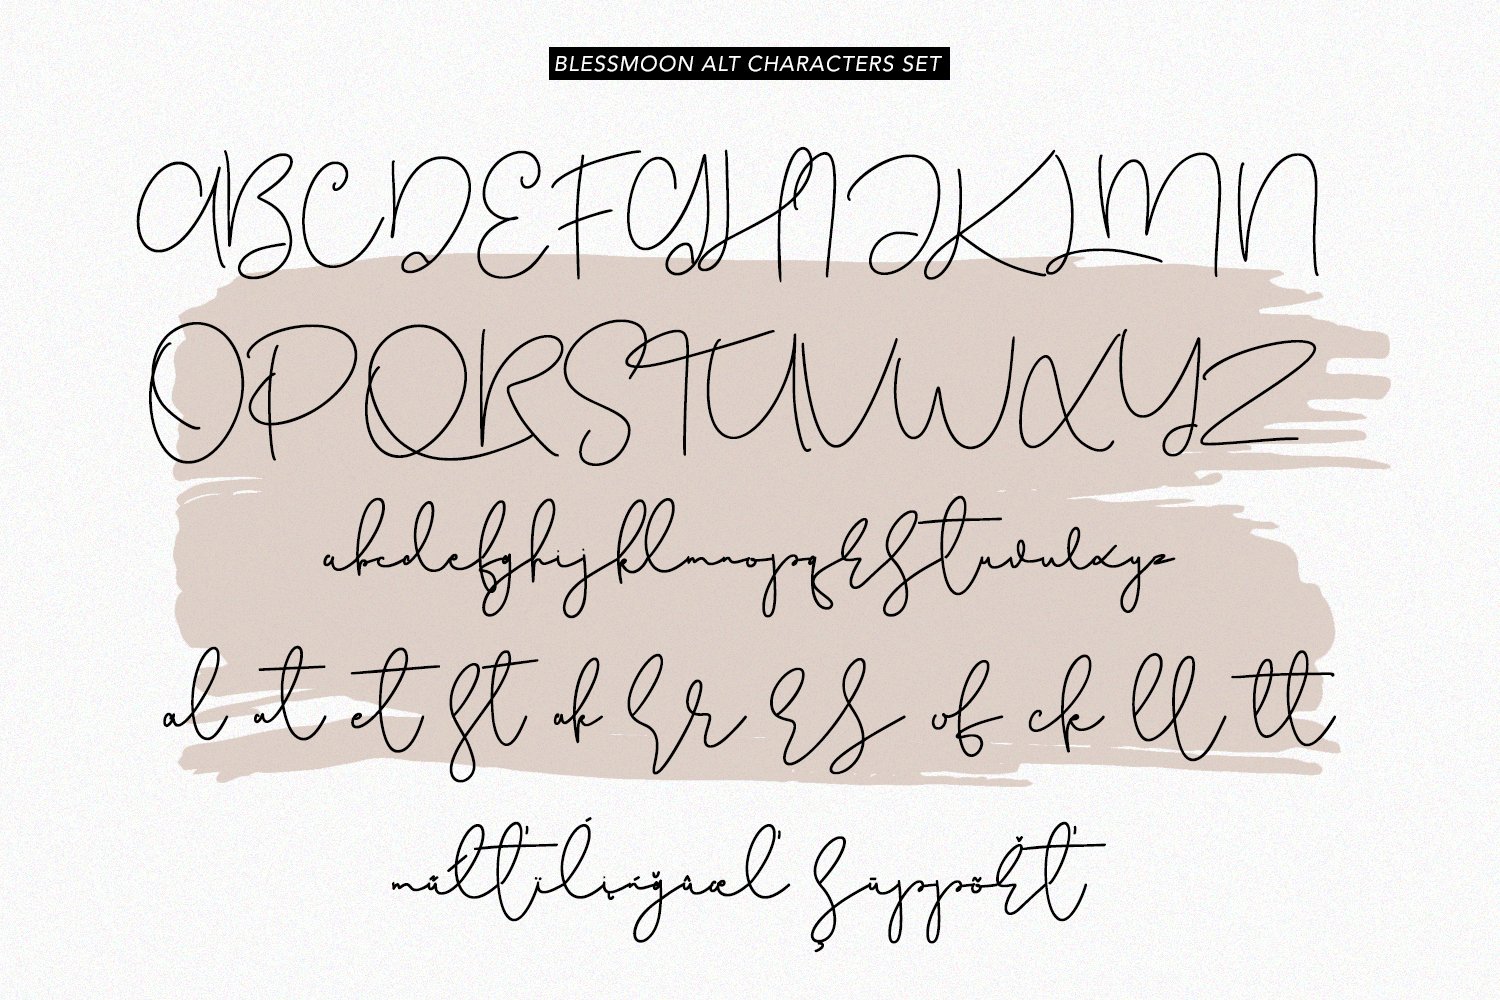 BLESSMOON ALT CHARACTERS SET
ABCDEFGHIJKLMN
OPQRSTUVWXYZ
abcdefghijklmnopqrstuvwxyz
al at et st ak s r r s of ck ll tt